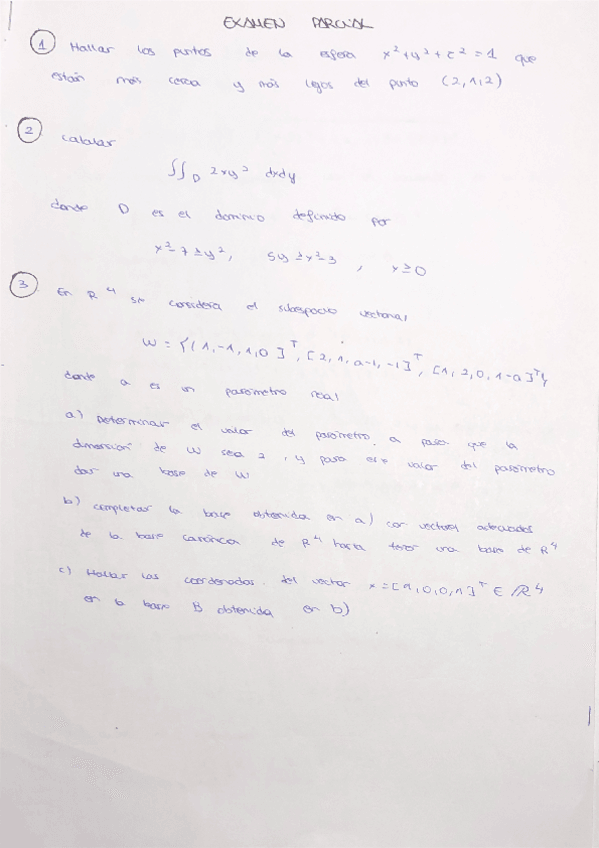 EXAMEN PARCIAL
1 Hallar los puntos de la esfera x²+y²+z²=1 que
están más cerca y más lejos del punto (2,1,2)
2 Calcular
∬_D 2xy² dxdy
donde D es el dominio definido por
x²-7≥y², 5y≥x²-3, x≥0
3 En R⁴ se considera el subespacio vectorial
W={[1,-1,1,0]ᵀ,[2,1,a-1,-1]ᵀ,[1,2,0,1-a]ᵀ}
donde a es un parámetro real
a) Determinar el valor del parámetro a para que la
dimensión de W sea 2, y para ese valor del parámetro
dar una base de W
b) completar la base obtenida en a) con vectores adecuados
de la base canónica de R⁴ hasta tener una base de R⁴
c) Hallar las coordenadas del vector x=[1,0,0,1]ᵀ ∈ R⁴
en la base B obtenida en b)